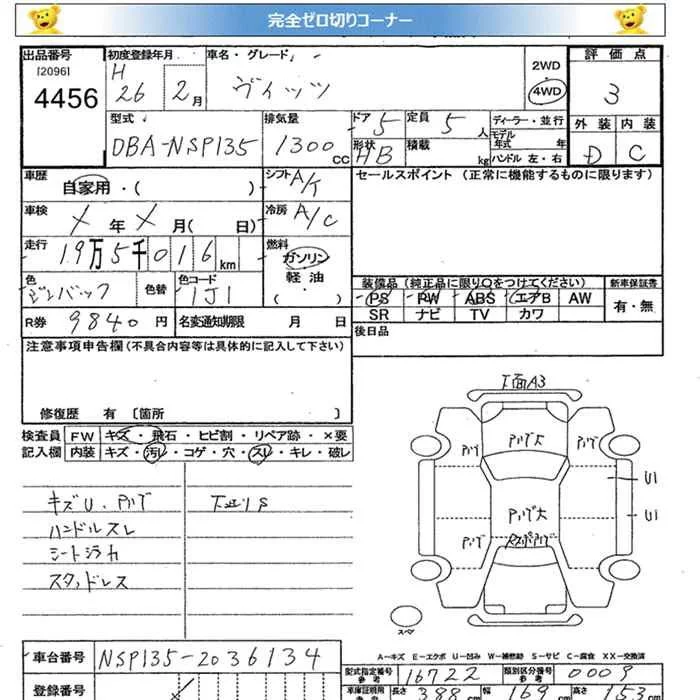 完全ゼロ切りコーナー
出品番号 初度登録年月 車名・グレード 2WD 評価点
[2096] H 26 2月 ヴィッツ 4WD 3
4456
型式 排気量 ドア 5 定員 5人 ディーラー・並行 外装 内装
DBA-NSP135 1300cc 形状 HB 積載 kg モデル年式 年 D C
ハンドル 左・右
車歴 自家用・( ) シフト A/T セールスポイント (正常に機能するものに限ります)
車検 X年X月( 日) 冷房 A/C
走行 19万5千016km 燃料 ガソリン 軽油・( )
色 色替 色コード 1J1
装備品 (純正品に限り○をつけてください) 新車保証書
PS PW ABS エアB AW 有・無
SR ナビ TV カワ
R券 9840円 名変通知期限 月 日 後日品
注意事項申告欄(不具合内容等は具体的に記入して下さい)
修復歴 有 〔箇所 〕
検査員 FW キズ・飛石・ヒビ割・リペア跡・×要
記入欄 内装 キズ・汚レ・コゲ・穴・スレ・キレ・破レ
キズU・アバタ 下廻りS
ハンドルスレ
シートシラカ
スタッドレス
下面A3
U1
U1
スペア
A-キズ E-エクボ U-凹み W-補修跡 S-サビ C-腐食 XX-交換済
車台番号 NSP135-2036134
型式指定番号 参考 16722 類別区分番号 参考 0009
登録番号 車庫証明用 参考 長さ 388 幅 169 高さ 153cm